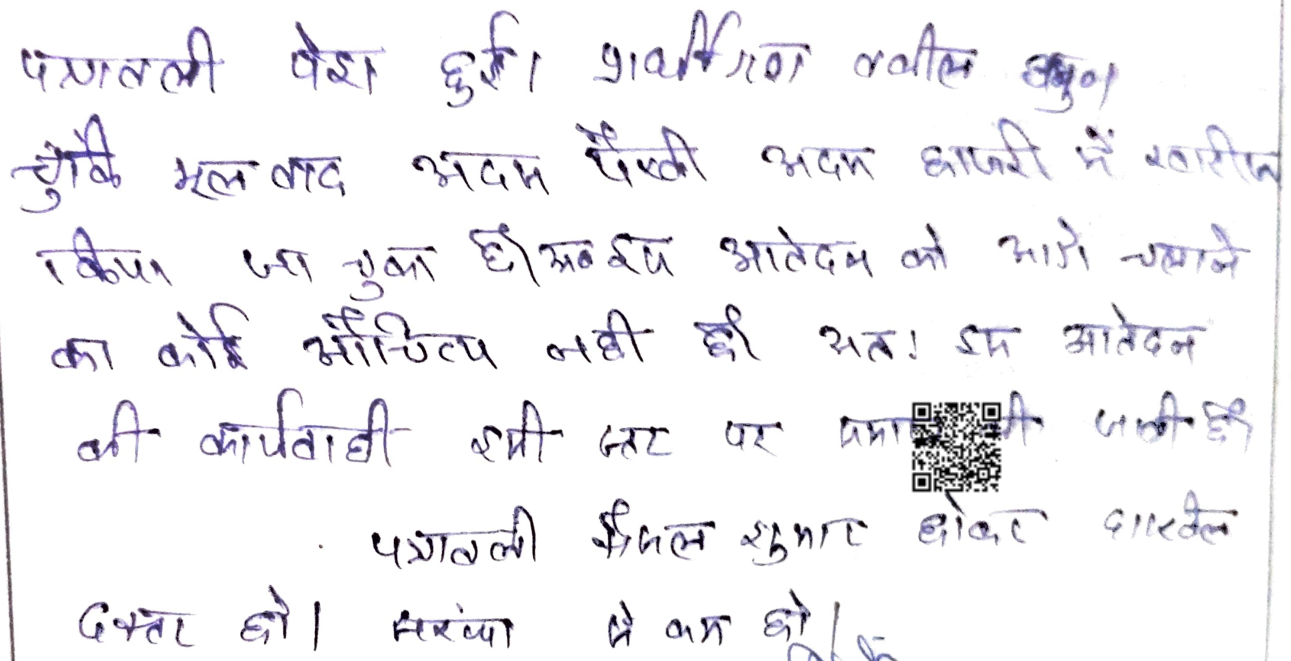 पत्रावली पेश हुई। प्रार्थीगण वकील
चुंकि मूल वाद अदम पैरवी अदम हाजरी में खारीज
किया जा चुका है। अब इस आवेदन को आगे चलाने
का कोई औचित्य नही है। अतः इस आवेदन
की कार्यवाही इसी स्तर पर की जाती है।
पत्रावली फैसल शुमार होकर दाखिल
दफ्तर हो। संख्या से कम हो।